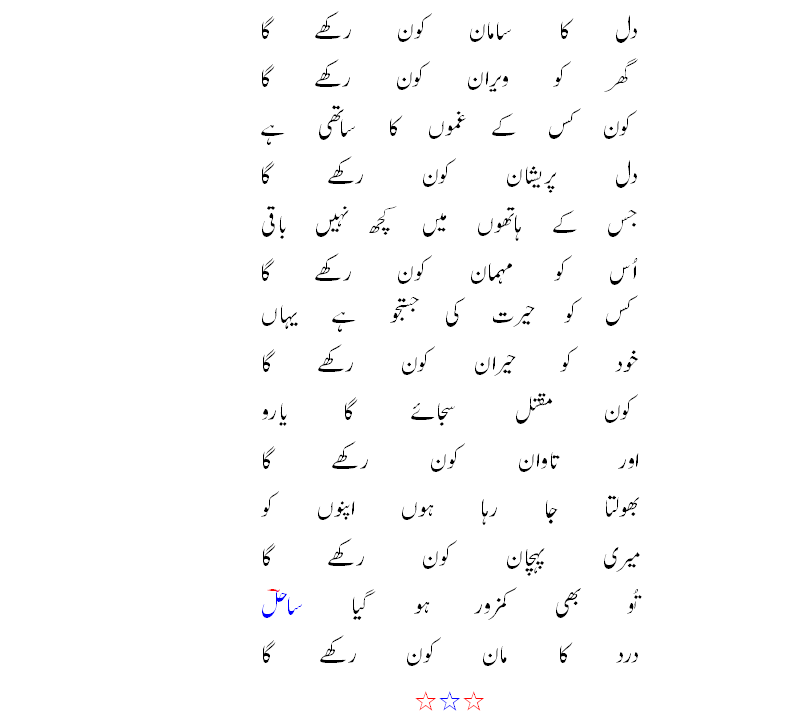 دل کا سامان کون رکھے گا
گھر کو ویران کون رکھے گا
کون کس کے غموں کا ساتھی ہے
دل پریشان کون رکھے گا
جس کے ہاتھوں میں کچھ نہیں باقی
اُس کو مہمان کون رکھے گا
کس کو حیرت کی جستجو ہے یہاں
خود کو حیران کون رکھے گا
کون مقتل سجائے گا یارو
اور تاوان کون رکھے گا
بھولتا جا رہا ہوں اپنوں کو
میری پہچان کون رکھے گا
تُو بھی کمزور ہو گیا ساحلؔ
درد کا مان کون رکھے گا
☆☆☆